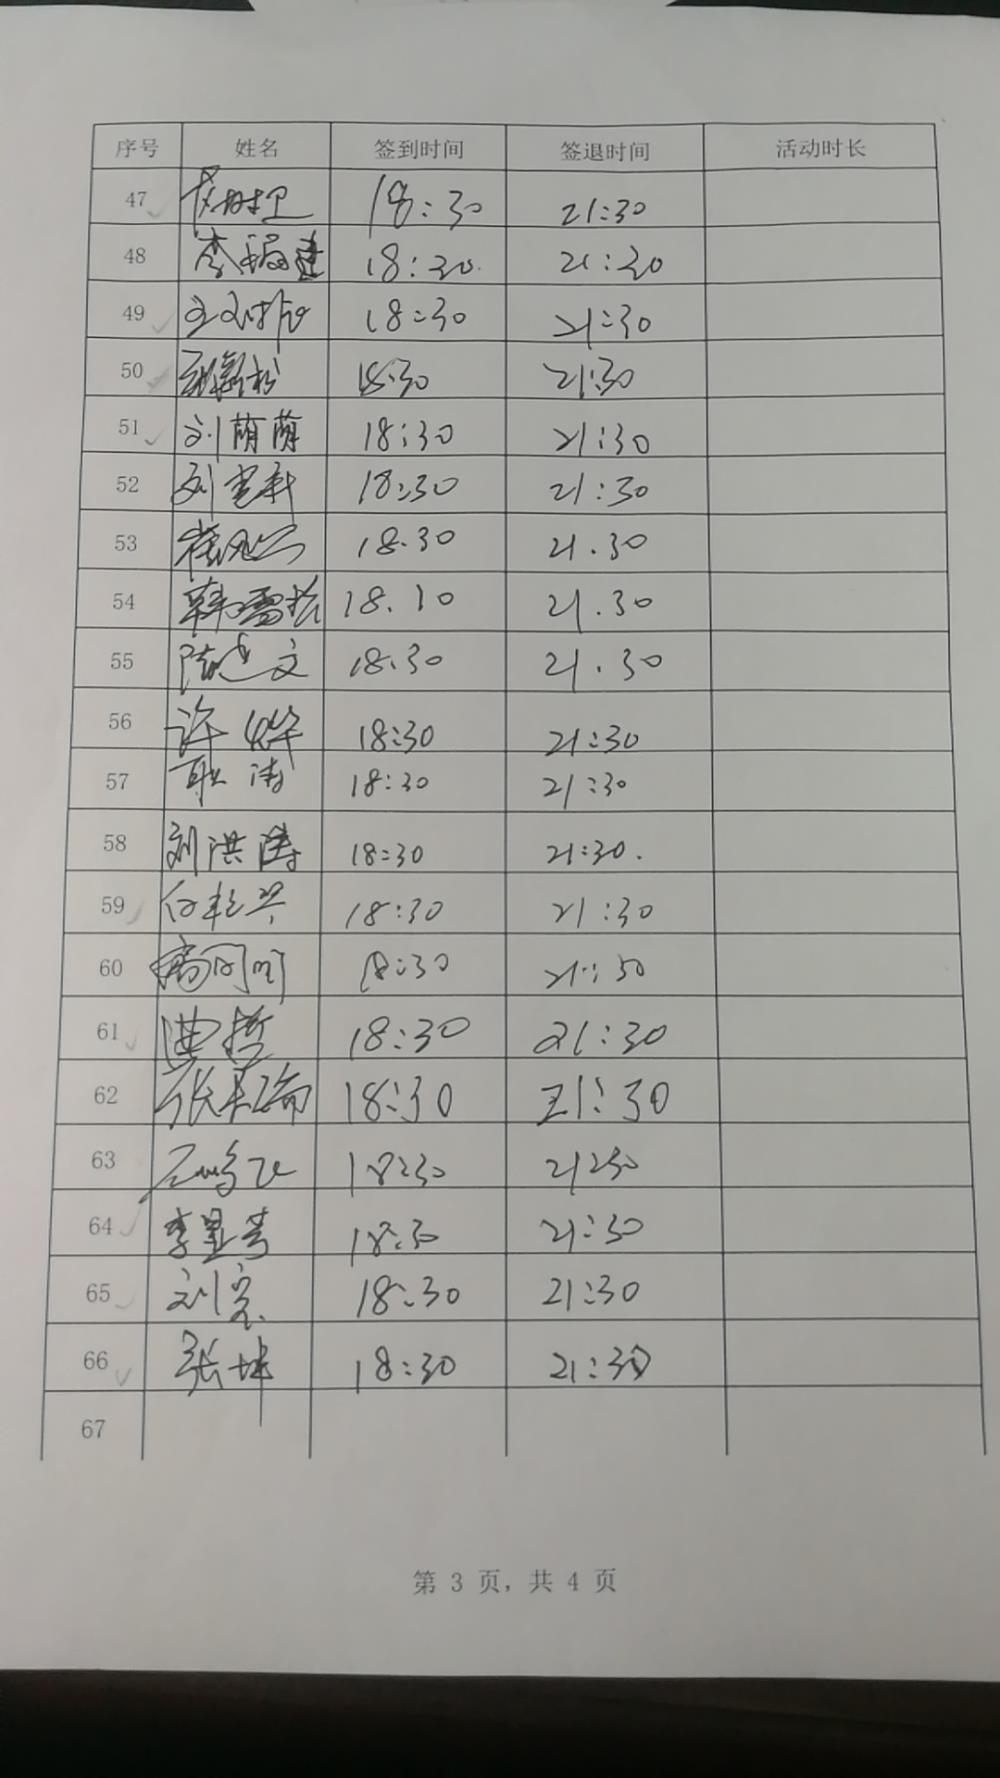 序号 姓名 签到时间 签退时间 活动时长
47 18:30 21:30
48 李福建 18:30 21:30
49 18:30 21:30
50 18:30 21:30
51 刘萌萌 18:30 21:30
52 刘 18:30 21:30
53 18.30 21.30
54 韩雪松 18.10 21.30
55 陈建文 18.30 21.30
56 许烨 18:30 21:30
57 耿涛 18:30 21:30
58 刘洪涛 18:30 21:30.
59 18:30 21:30
60 18:30 21:30
61 曲哲 18:30 21:30
62 张 18:30 21:30
63 18:30 21:30
64 李显 18:30 21:30
65 刘宏 18:30 21:30
66 张坤 18:30 21:30
67
第 3 页，共 4 页